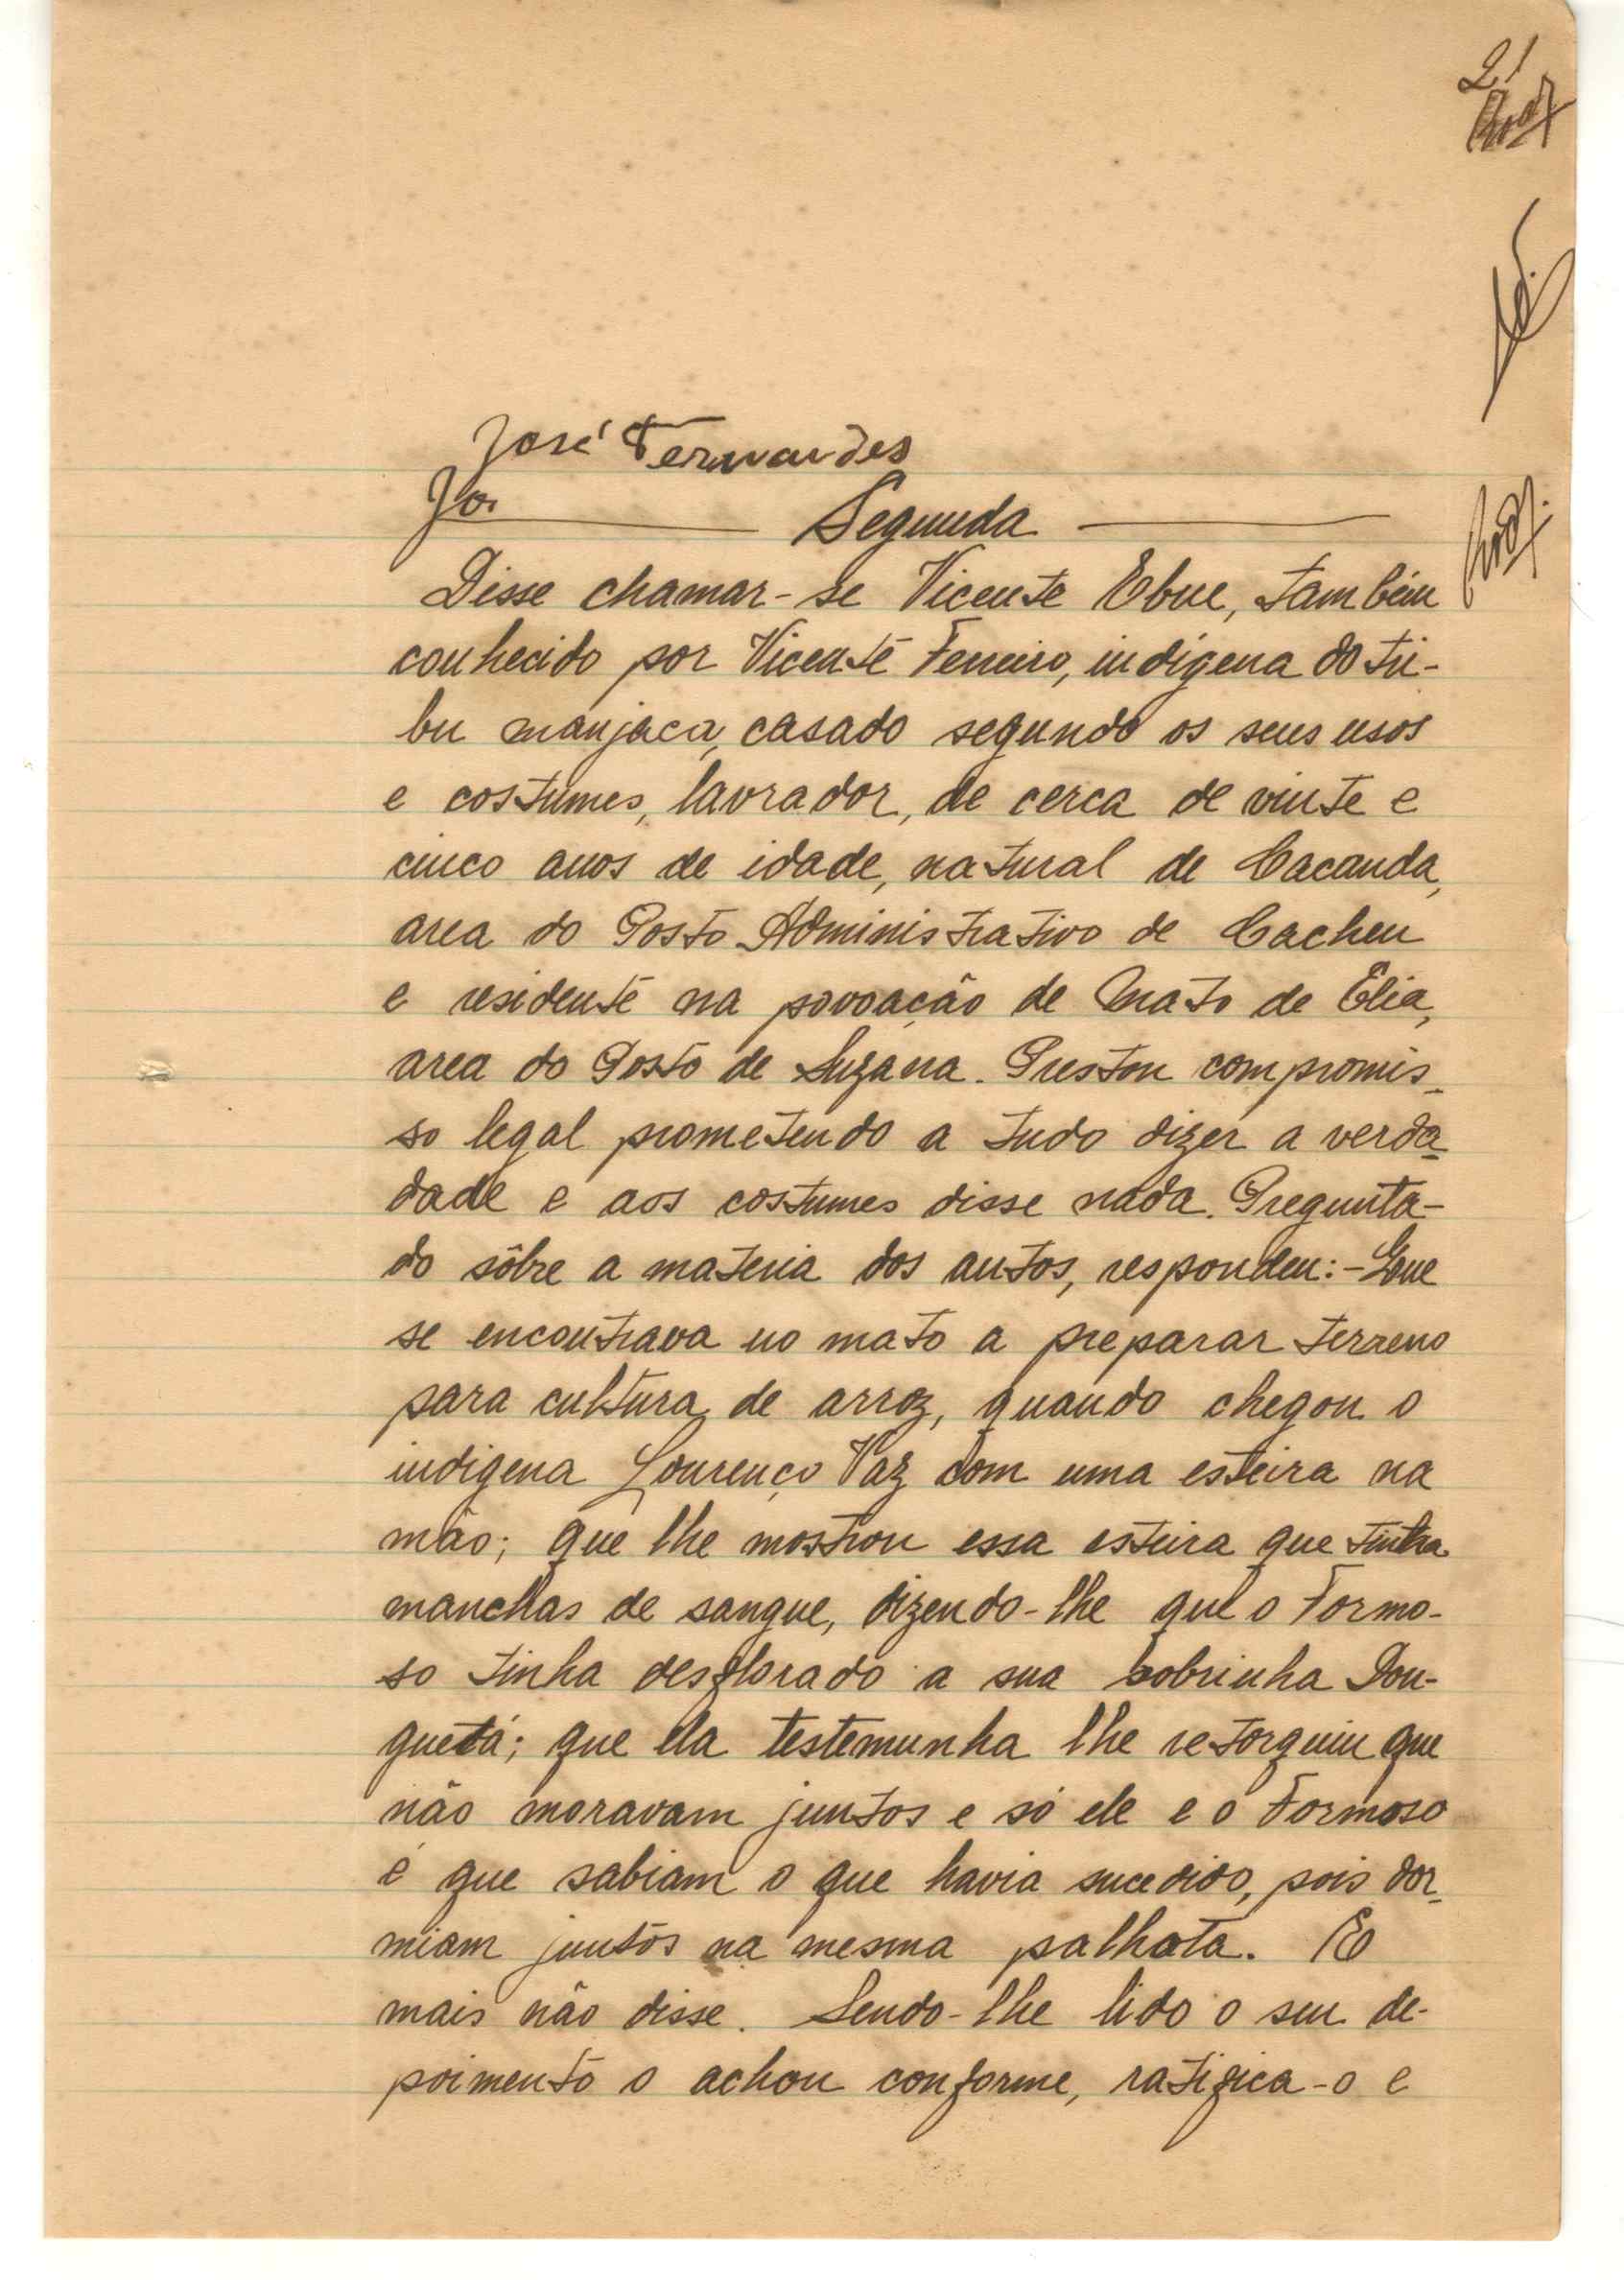 21
José Fernandes
Jo.
Segunda
Disse chamar-se Vicente Ebue, também
conhecido por Vicente Ferreiro, indígena da tri-
bu manjaca, casado segundo os seus usos
e costumes, lavrador, de cerca de vinte e
cinco anos de idade, natural de Cacanda,
area do Posto Administrativo de Cacheu
e residente na povoação de Mato de Elia,
area do Posto de Suzana. Prestou compromis-
so legal prometendo a tudo dizer a verda
dade e aos costumes disse nada. Pregunta-
do sôbre a materia dos autos, respondeu:-Que
se encontrava no mato a preparar terreno
para cultura de arroz, quando chegou o
indigena Lourenço Vaz com uma esteira na
mão; que lhe mostrou essa esteira que tinha
manchas de sangue, dizendo-lhe que o Formo-
so tinha desflorado a sua sobrinha Don-
guetá; que ela testemunha lhe retorquiu que
não moravam juntos e só ele e o Formoso
é que sabiam o que havia sucedido, pois dor-
miam juntos na mesma palhota. E
mais não disse. Sendo-lhe lido o seu de-
poimento o achou conforme, ratifica-o e